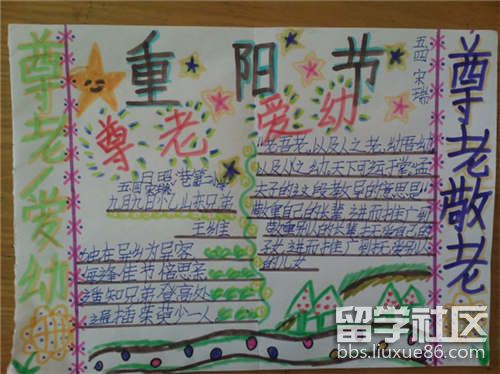 重阳节
五四 宋瑞
尊老 爱幼
尊老爱幼
尊老敬老
九月九日忆山东兄弟
王维
独在异乡为异客
每逢佳节倍思亲
遥知兄弟登高处
遍插茱萸少一人
"老吾老,以及人之老,幼吾幼
以及人之幼,天下可运于掌"孟
夫子的这段教导的意思是
敬重自己的长辈,进而推广到
敬重别人的长辈,关爱自己的
子女,进而推广到关爱别人
的儿女
留学社区
bbs.liuxue86.com